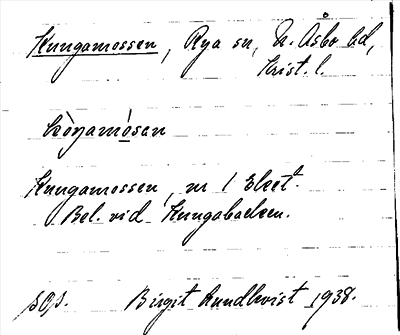 Kungamossen, Rya sn, N. Åsbo hd,
Krist. l.
Kungamossen, nr 1 Eket.
Bel. vid Kungabacken.
SOS. Birgit Rundkvist 1938.